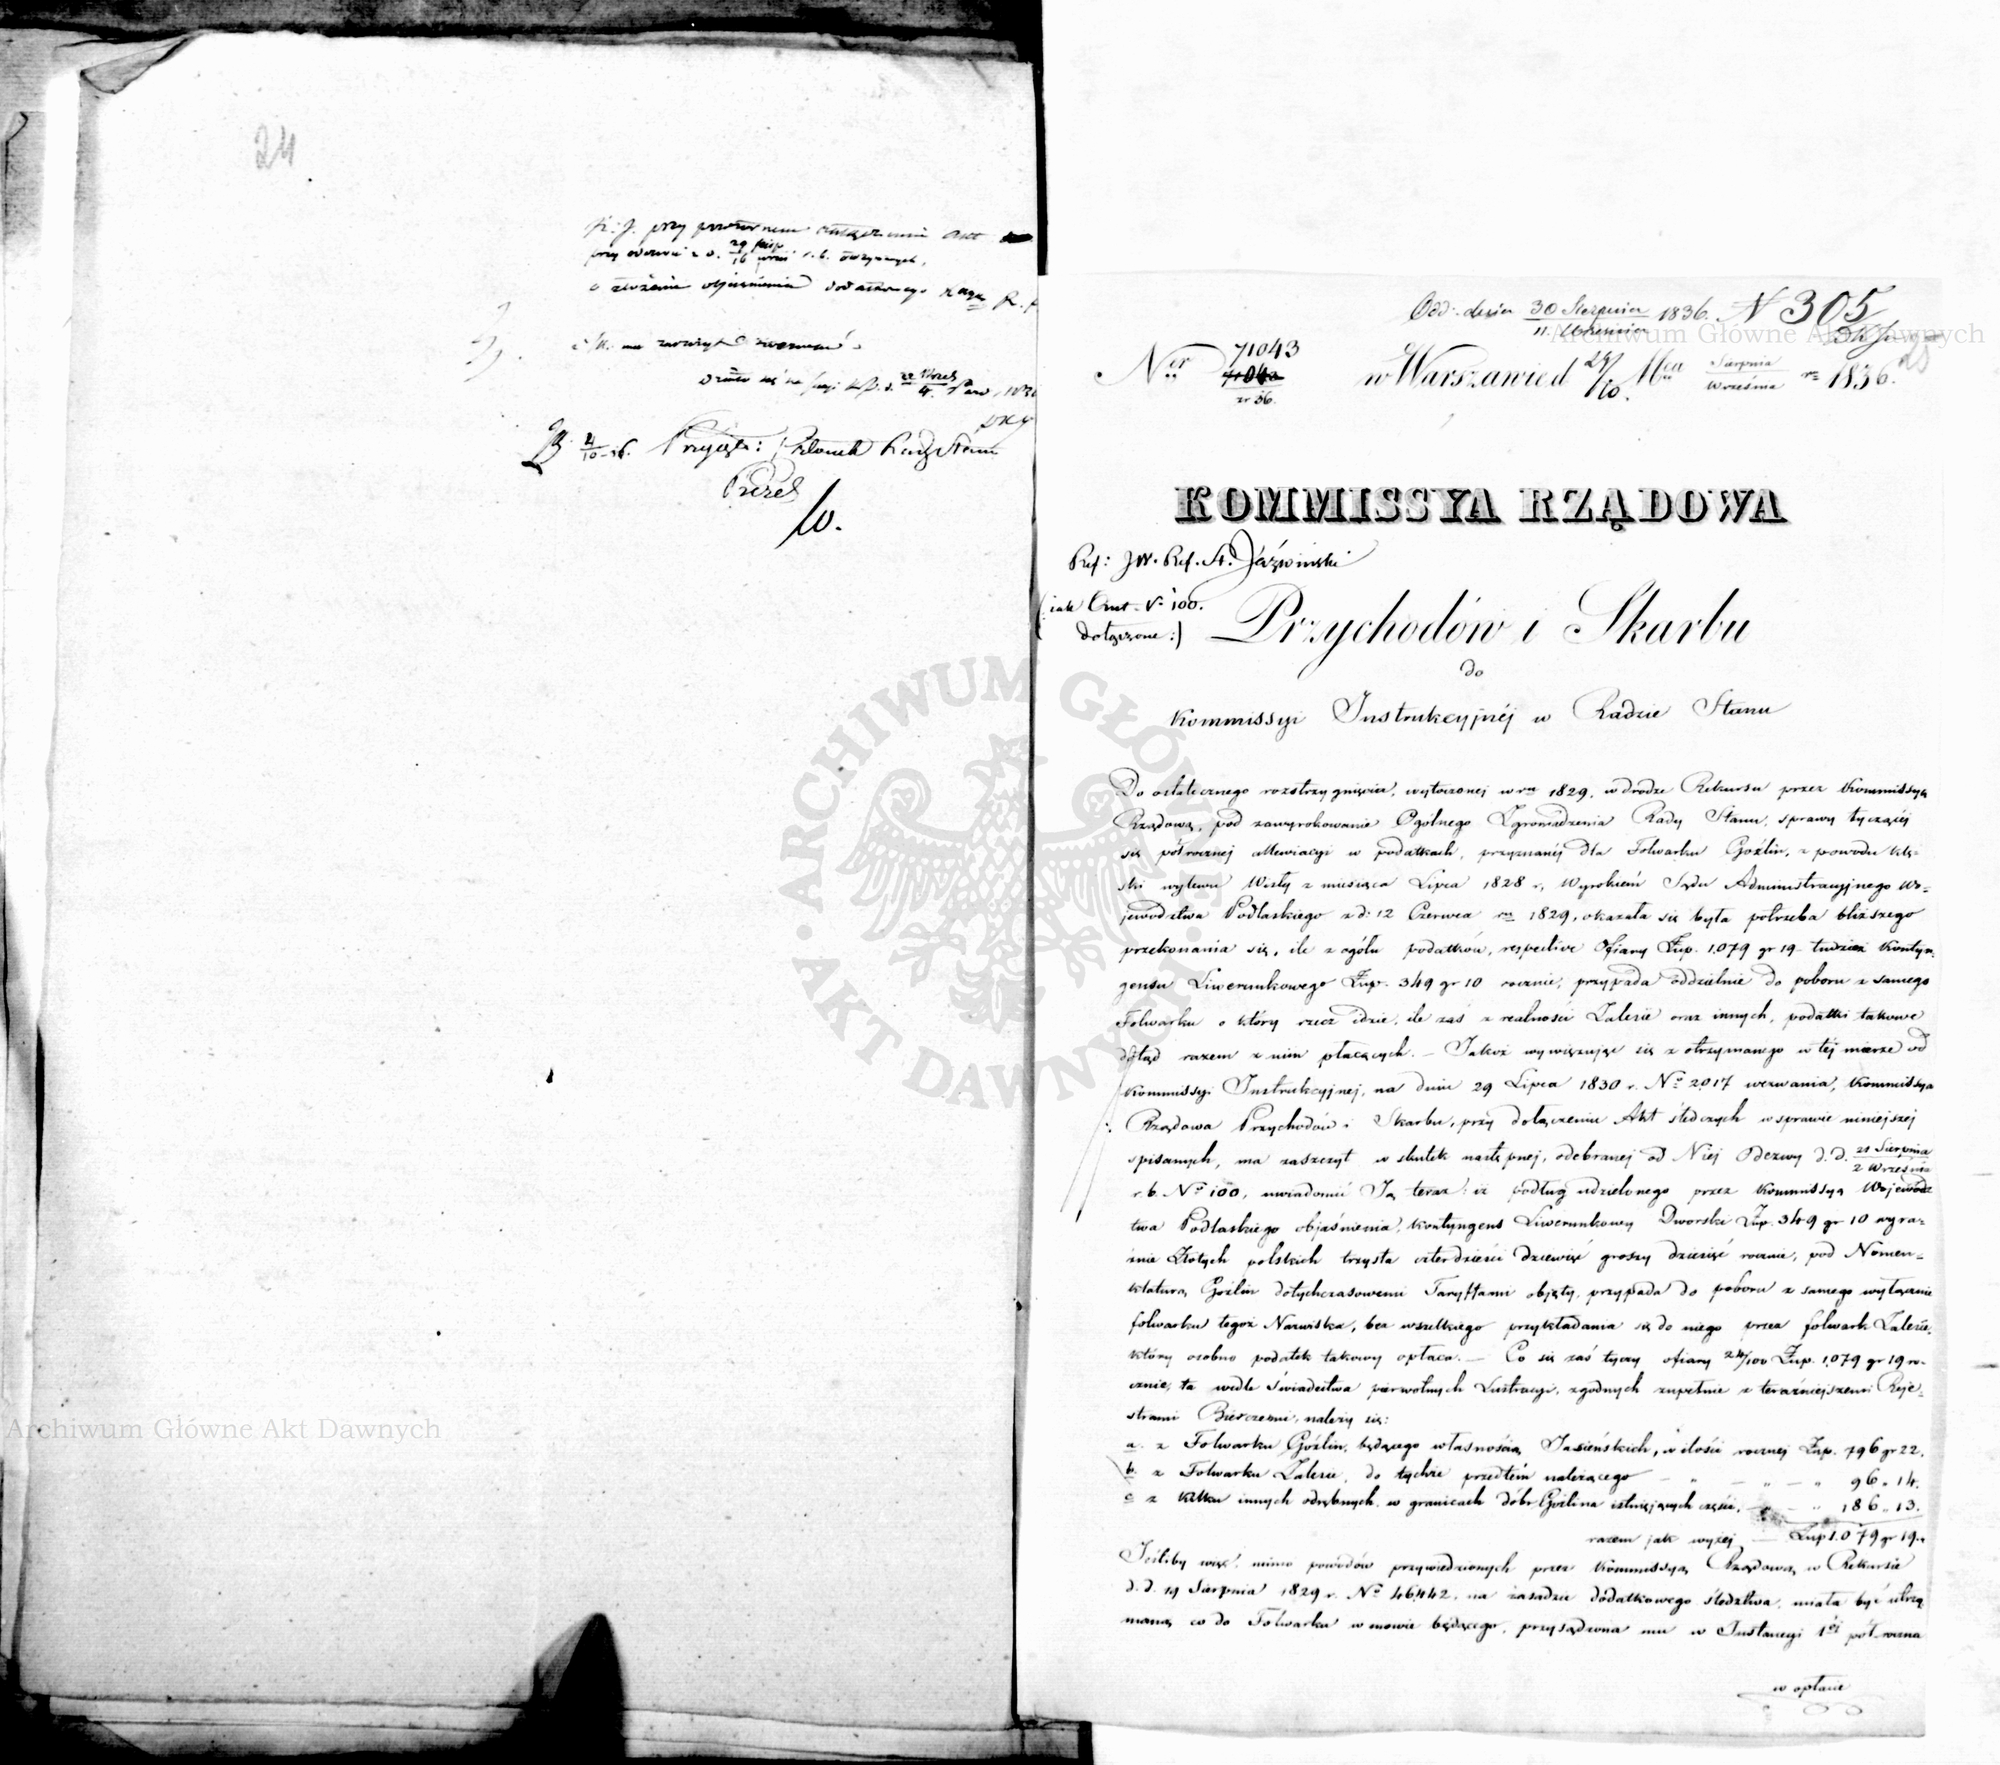 24
przy odezwie z d. 29 Sierp / 16 Wrześ r. b.
o złożenie objaśnienia dodatkowego
ma zaszczyt wezwać
Odd: dnia 30 Sierpnia / 11. Września 1836. N 305
Nr 71043
w Warszawie d 29/10. Mca Sierpnia / Września r 1836.
KOMMISSYA RZĄDOWA
Ref: JW. Ref. St. Jaźwiński
dołączone :)
Przychodów i Skarbu
do
Kommissyi Instrukcyjnéj w Radzie Stanu
Do ostatecznego rozstrzygnięcia, wytoczonej w ru 1829, w drodze Rekursu przez Kommissyą
Rządową, pod zawyrokowanie Ogólnego Zgromadzenia Rady Stanu, sprawy tyczącéj
się półrocznej allewiacyi w podatkach, przyznanéj dla Folwarku Goźlin, z powodu klę-
ski wylewu Wisły z miesiąca Lipca 1828 r, Wyrokiem Sądu Administracyjnego Wo-
jewództwa Podlaskiego z d: 12 Czerwca ru 1829, okazała się była potrzeba bliższego
przekonania się, ile z ogółu podatków, respective Ofiary Złp. 1,079 gr 19 tudzież Kontyn-
gensu Liwerunkowego Złp. 349 gr 10 rocznie, przypada oddzielnie do poboru z samego
Folwarku o który rzecz idzie, ile zaś z realności Zalesie oraz innych, podatki takowe
dotąd razem z nim płacących. — Jakoż wywiązując się z otrzymanego w téj mierze od
Kommissyi Instrukcyjnej, na dniu 29 Lipca 1830 r. No 2017 wezwania, Kommissya
Rządowa Przychodów i Skarbu, przy dołączeniu Akt śledczych w sprawie niniejszej
spisanych, ma zaszczyt w skutek następnej, odebranej od Niej Odezwy d. d. 21 Sierpnia / 2 Września
r. b. No 100, uwiadomić Ją teraz: iż podług udzielonego przez Kommissyą Wojewódz
twa Podlaskiego objaśnienia, kontyngens Liwerunkowy Dworski Złp. 349 gr 10 wyra-
źnie Złotych polskich trzysta czterdzieści dziewięć groszy dziesięć rocznie, pod Nomen-
klaturą Goźlin dotychczasowemi Taryffami objęty, przypada do poboru z samego wyłącznie
folwarku tegoż Nazwiska, bez wszelkiego przykładania się do niego przez folwark Zalesie,
który osobno podatek takowy opłaca. — Co się zaś tyczy ofiary 24/100 Złp. 1,079 gr 19 ro-
cznie, ta wedle świadectwa pierwotnych Lustracyi, zgodnych zupełnie z teraźniejszemi Reje-
strami Bierczemi, należy się:
a. z Folwarku Goźlin, będącego własnością Jasieńskich, w ilości rocznej Złp. 796 gr 22.
b. z Folwarku Zalesie, do tychże przedtém należącego — „ — „ — „ 96 „ 14.
c z kilku innych odrębnych w granicach dóbr Goźlina istniejących części, — „ — „ 186 „ 13.
razem jak wyżej — Złp 1.079 gr 19.
Jeśliby więc mimo powodów przywiedzionych przez Kommissyą Rządową w Rekursie
d. d. 19 Sierpnia 1829 r. No 46,442, na zasadzie dodatkowego śledztwa, miała być utrzy
maną co do Folwarku w mowie będącego, przysądzona mu w Instancyi 1éj półroczna
w opłacie